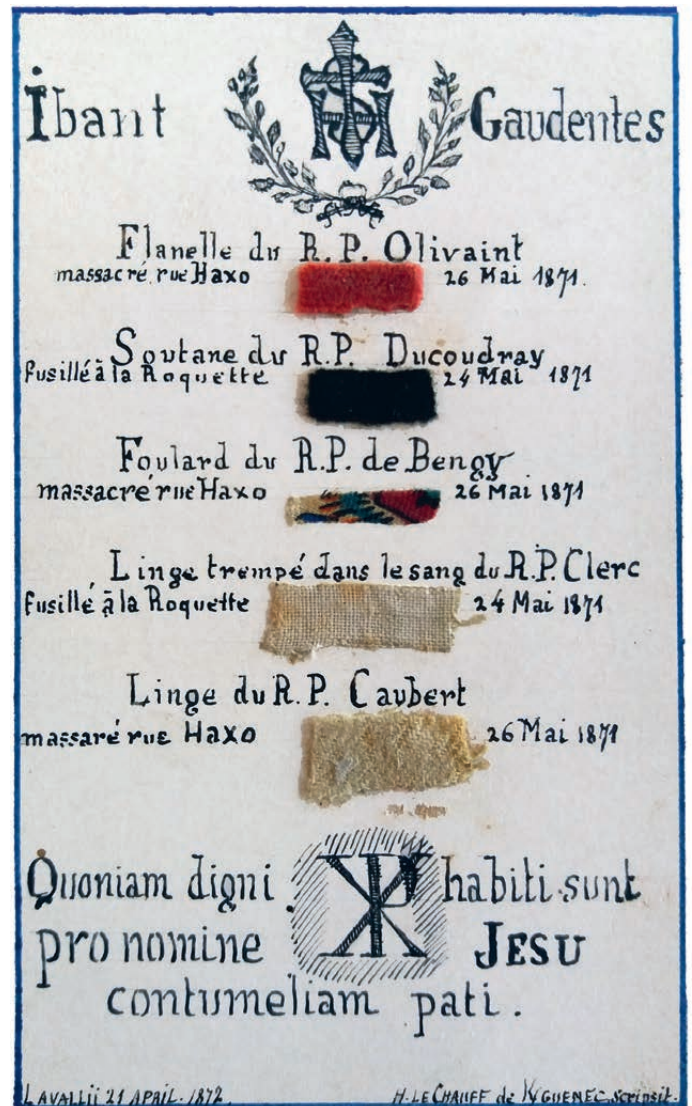 Ibant Gaudentes
Flanelle du R.P. Olivaint
massacré rue Haxo 26 Mai 1871.
Soutane du R.P. Ducoudray
fusillé à la Roquette 24 Mai 1871
Foulard du R.P. de Bengy
massacré rue Haxo 26 Mai 1871
Linge trempé dans le sang du R.P. Clerc
fusillé à la Roquette 24 Mai 1871
Linge du R.P. Caubert
massaré rue Haxo 26 Mai 1871
Quoniam digni habiti sunt
pro nomine JESU
contumeliam pati.
LAVALLII 21 APRIL. 1872. H. LE CHAUFF de scripsit.